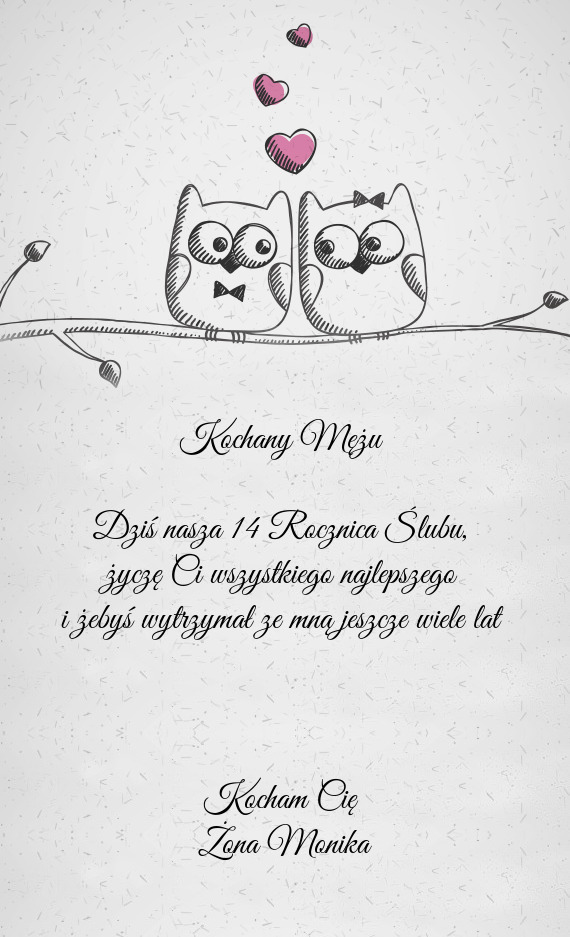 Kochany Mężu
Dziś nasza 14 Rocznica Ślubu,
życzę Ci wszystkiego najlepszego
i żebyś wytrzymał ze mną jeszcze wiele lat
Kocham Cię
Żona Monika